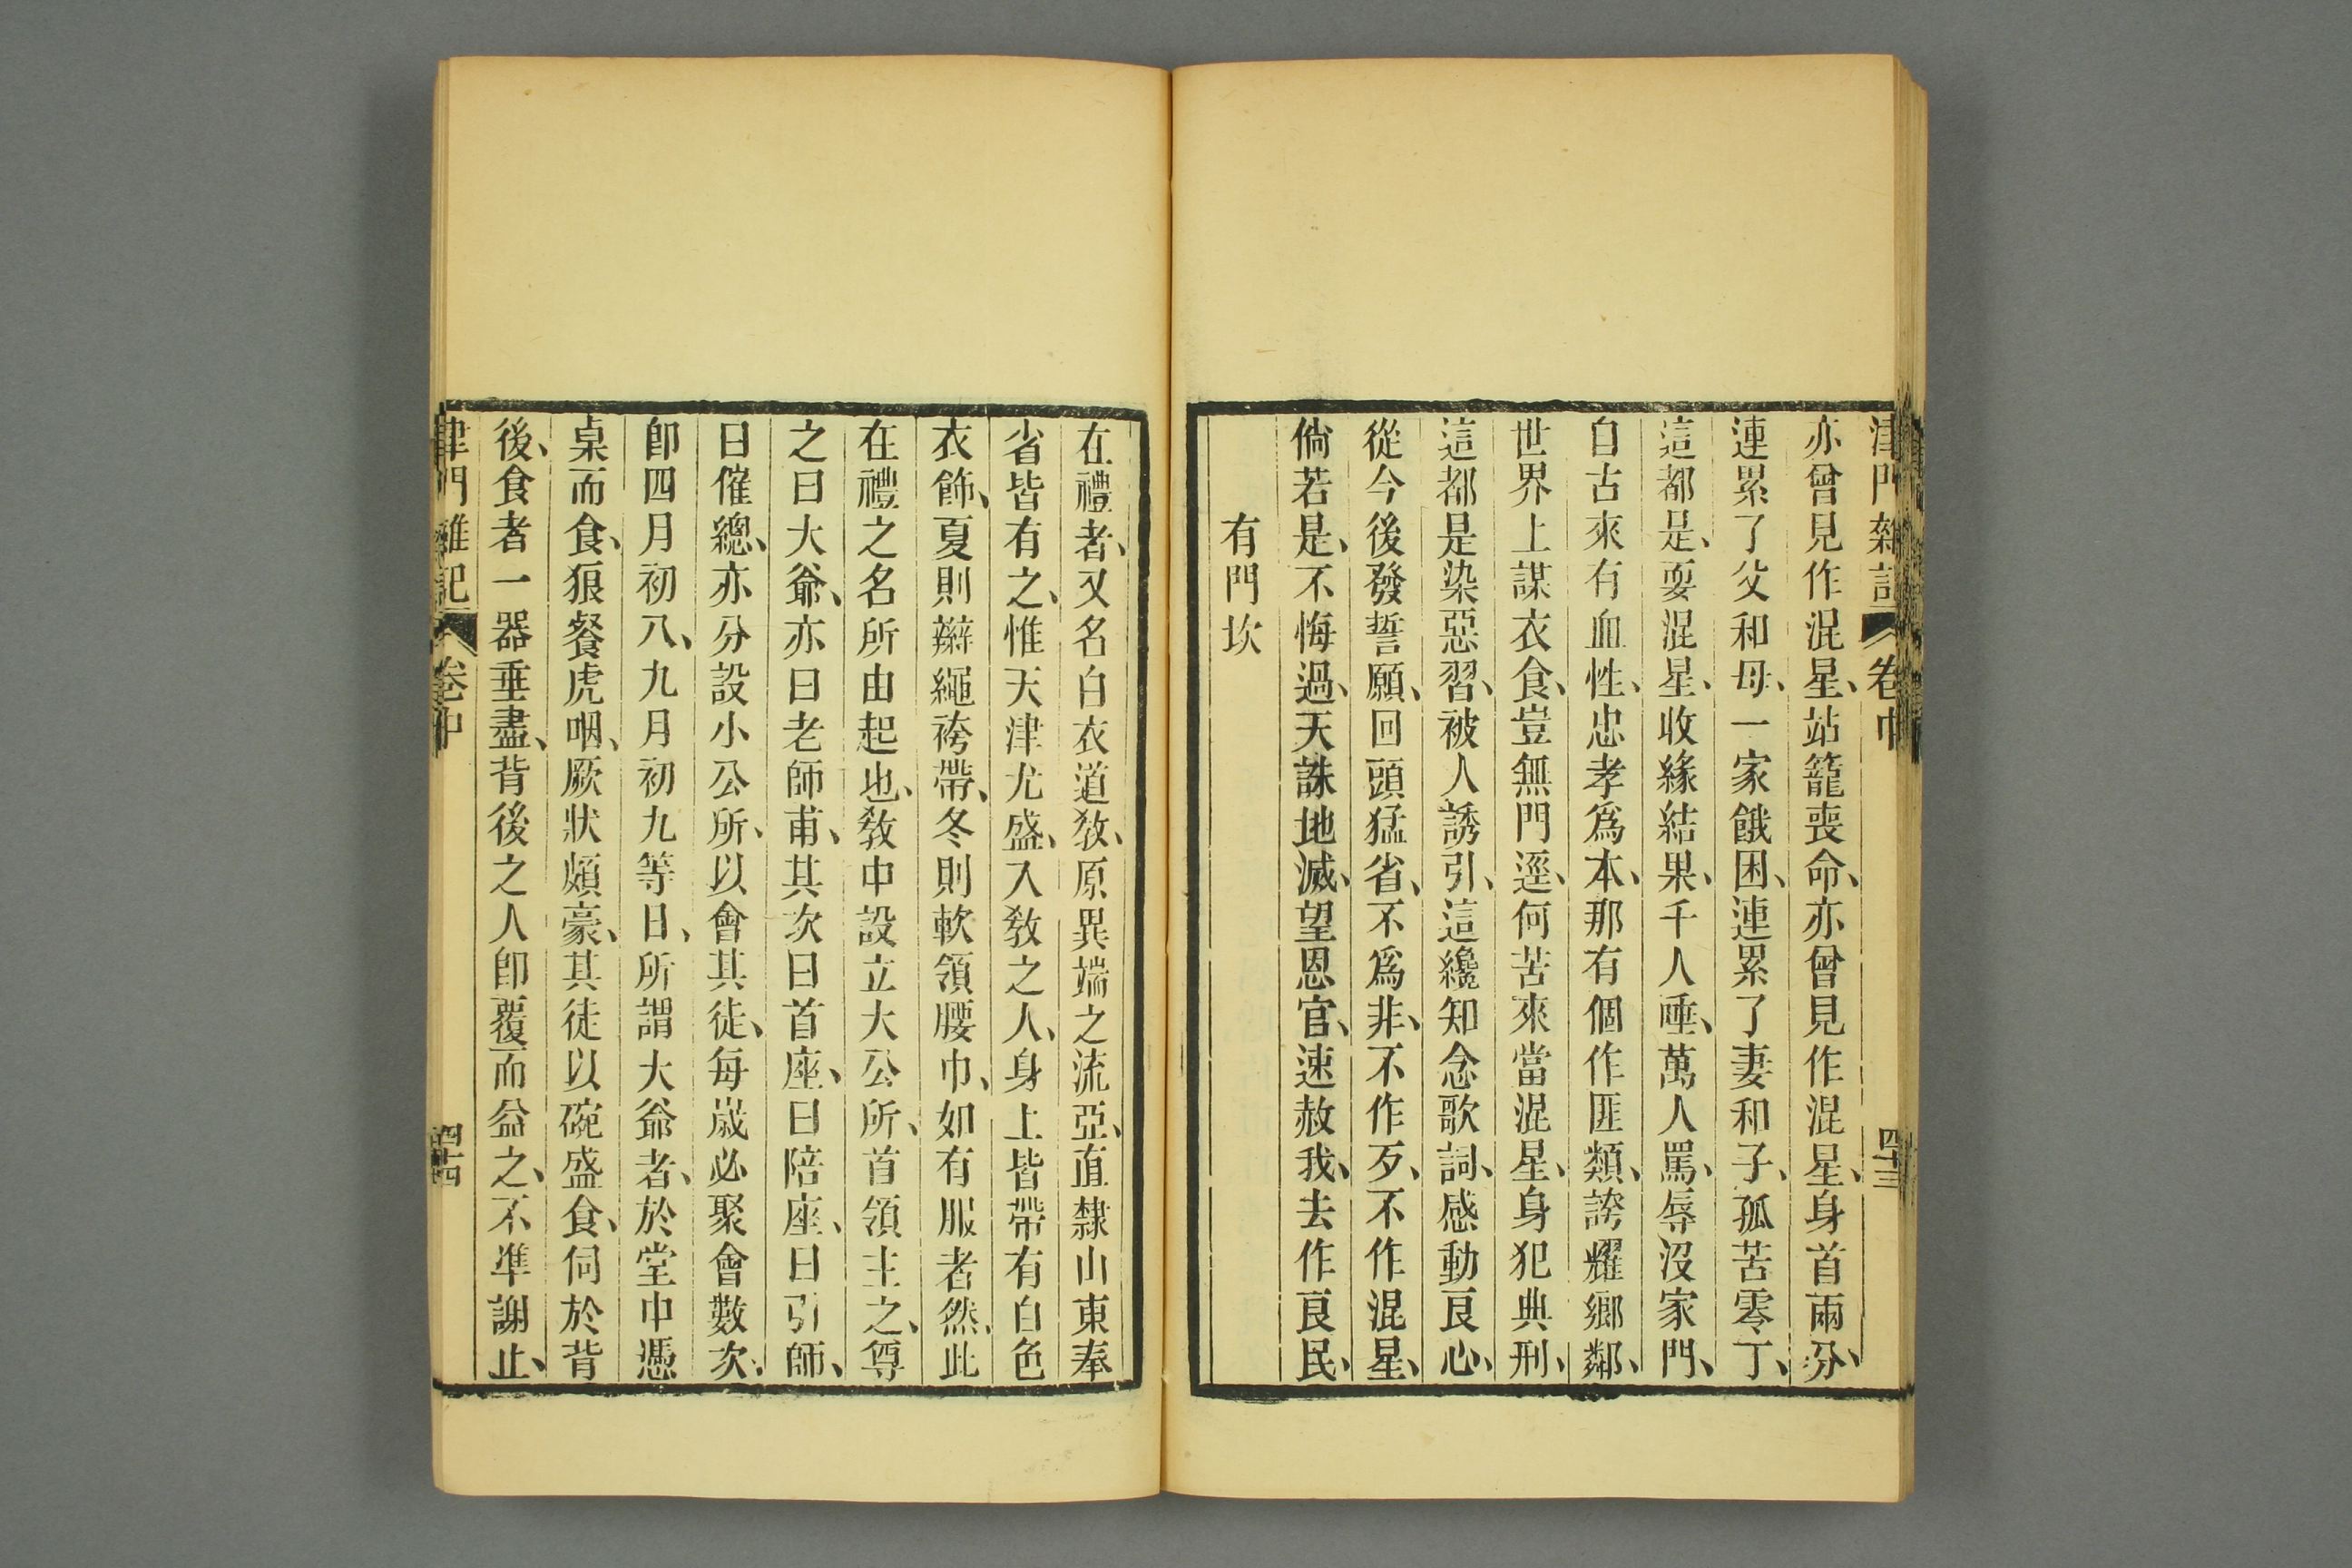 津門雜記 卷中 四十三
亦曾見作混星、站籠喪命、亦曾見作混星、身首兩分、
連累了父和母、一家餓困、連累了妻和子、孤苦零丁、
這都是、耍混星、收緣結果、千人唾、萬人罵、辱沒家門、
自古來有血性、忠孝爲本、那有個作匪類、誇耀鄉鄰、
世界上謀衣食、豈無門逕、何苦來當混星、身犯典刑、
這都是染惡習、被人誘引、這纔知念歌詞、感動良心、
從今後發誓願、回頭猛省、不爲非、不作歹、不作混星、
倘若是、不悔過、天誅地滅、望恩官、速赦我、去作良民、
有門坎
在禮者、又名白衣道教、原異端之流亞、直隸山東奉
省皆有之、惟天津尤盛、入教之人、身上皆帶有白色
衣飾、夏則辮繩袴帶、冬則軟領腰巾、如有服者然、此
在禮之名所由起也、教中設立大公所、首領主之、尊
之曰大爺、亦曰老師甫、其次曰首座、曰陪座、曰引師、
曰催總、亦分設小公所、以會其徒、每歲必聚會數次、
卽四月初八、九月初九等日、所謂大爺者、於堂中憑
桌而食、狼餐虎咽、厥狀頗豪、其徒以碗盛食、伺於背
後、食者一器垂盡、背後之人卽覆而益之、不準謝止、
津門雜記 卷中 四十四